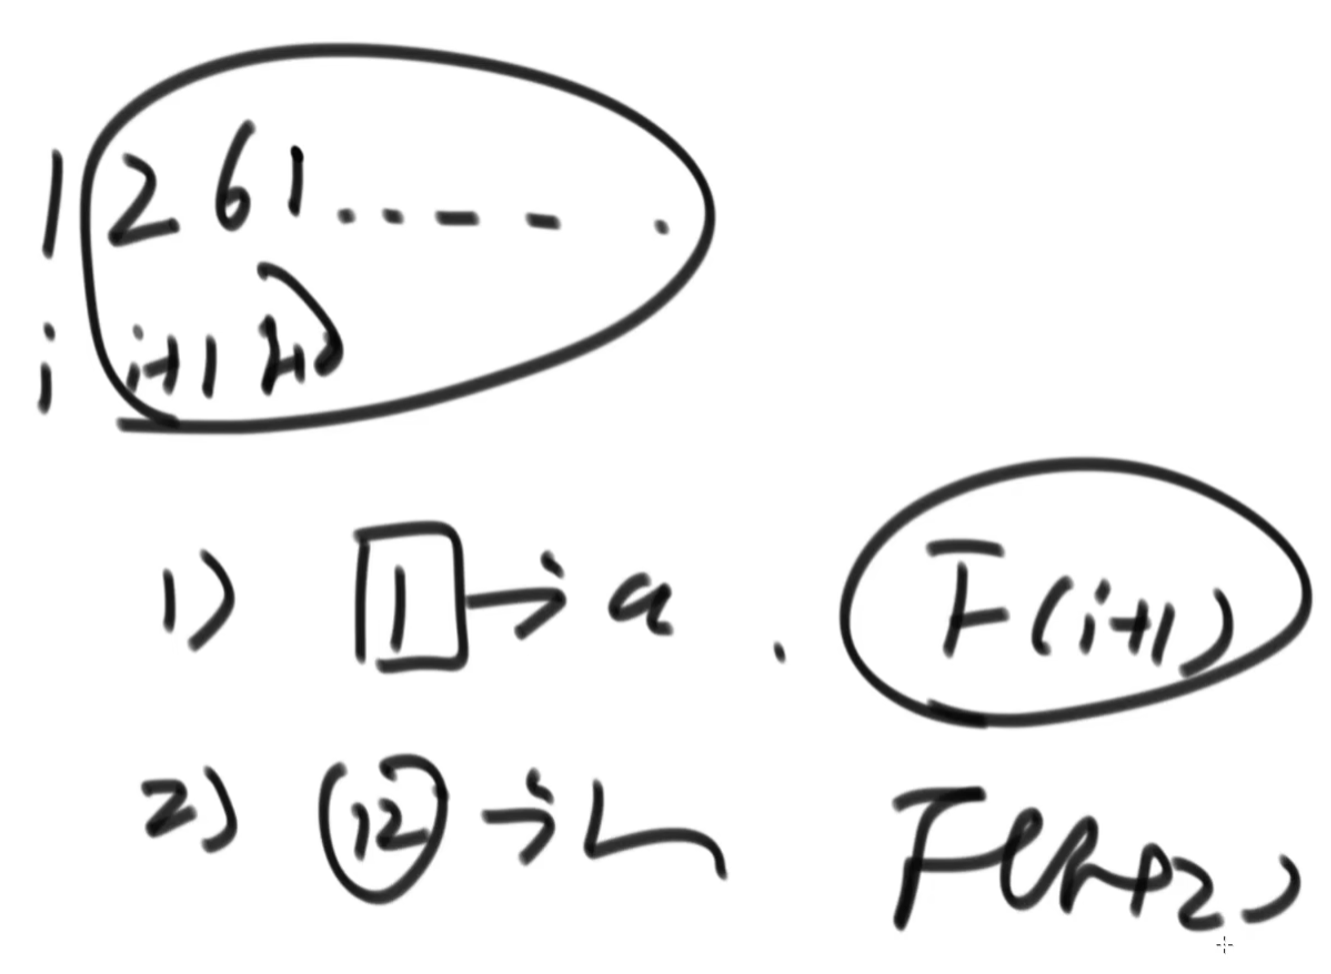 1 2 6 1 ..... - - .
i i+1 i+2
1) 1 → a . F(i+1)
2) 12 → L F(i+2)